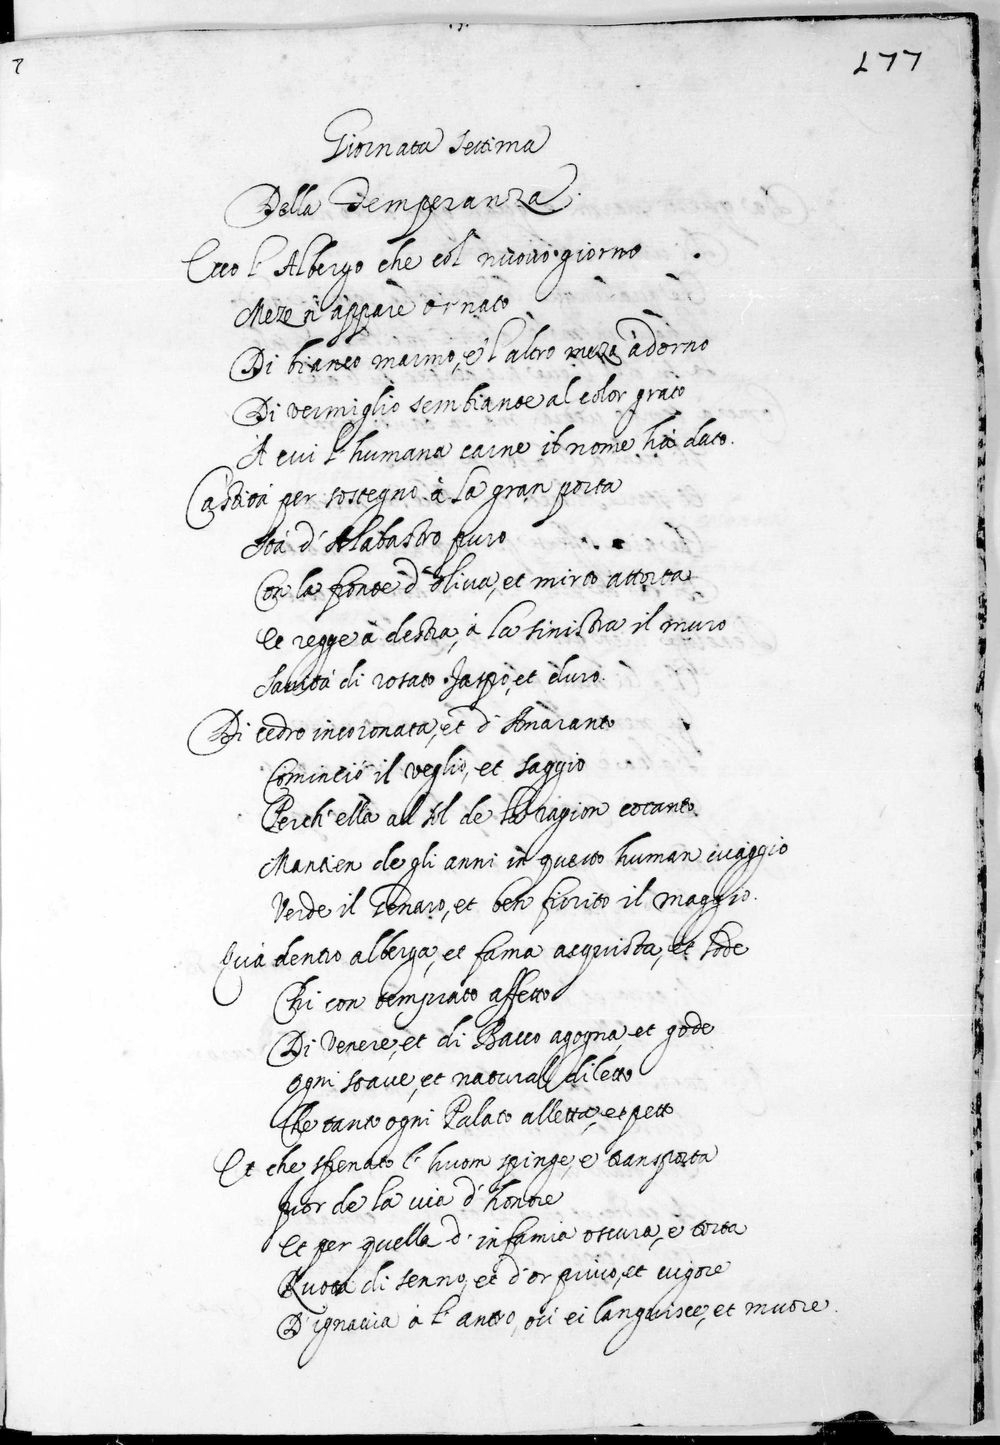 177
Giornata settima
Della Temperanza.
Ecco l' Albergo che col nuovo giorno
Mezo n' appare ornato
Di bianco marmo, e l' altro mezo adorno
Di vermiglio sembiante al color grato
A cui l' humana carne il nome hà dato.
Castità per sostegno à la gran porta
Stà d' Alabastro puro
Con la fronte d' oliva, et mirto attorta
Et regge à destra, à la sinistra il muro
Sanità di rosato Jaspo, et duro.
Di cedro incoronata, et d' Amaranto
Cominciò il veglio, et saggio
Perch' ella al sol de la ragion cotanto
Mantien de gli anni in questo human viaggio
Verde il Genaro, et ben fiorito il maggio.
Quà dentro alberga, et fama acquista, et lode
Chi con temprato affetto
Di Venere, et di Bacco agogna, et gode
Ogni soave, et natural diletto
Che tanto ogni Palato alletta, et petto
Et che sfrenato l' huom spinge, e transporta
Fuor de la via d' honore
Et per quella d' infamia oscura, e torta
Ruota di senno, et d' or privo, et vigore
D' ignavia à l' antro, ov' ei languisce, et muore.